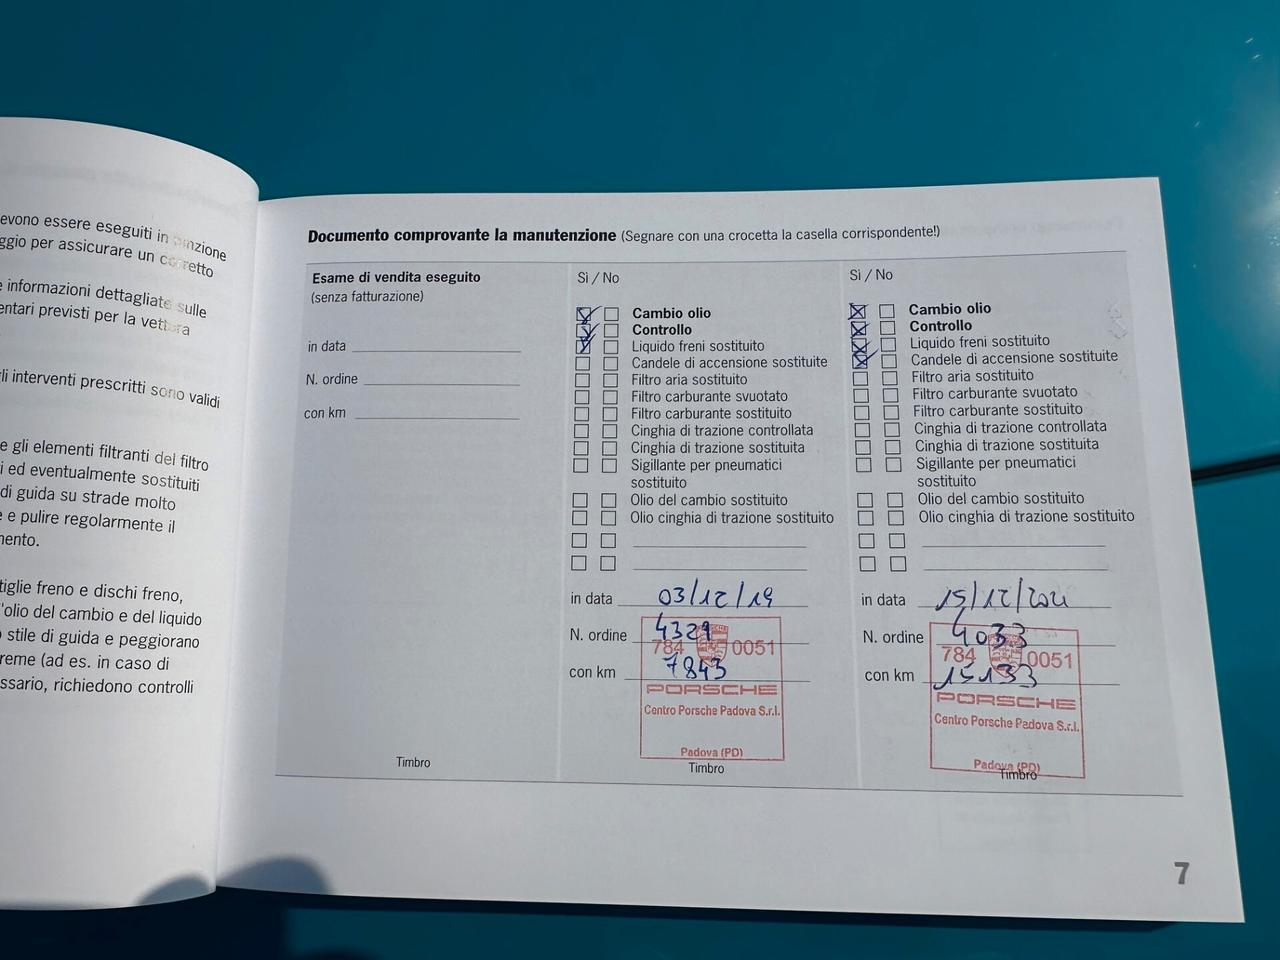 evono essere eseguiti in
ggio per assicurare un corretto
e informazioni dettagliate sulle
entari previsti per la vettura
gli interventi prescritti sono validi
e gli elementi filtranti del filtro
i ed eventualmente sostituiti
di guida su strade molto
e e pulire regolarmente il
nento.
tiglie freno e dischi freno,
l'olio del cambio e del liquido
o stile di guida e peggiorano
reme (ad es. in caso di
ssario, richiedono controlli
Documento comprovante la manutenzione (Segnare con una crocetta la casella corrispondente!)
Esame di vendita eseguito
(senza fatturazione)
in data
N. ordine
con km
Timbro
Sì / No
Cambio olio
Controllo
Liquido freni sostituito
Candele di accensione sostituite
Filtro aria sostituito
Filtro carburante svuotato
Filtro carburante sostituito
Cinghia di trazione controllata
Cinghia di trazione sostituita
Sigillante per pneumatici
sostituito
Olio del cambio sostituito
Olio cinghia di trazione sostituito
in data 03/12/19
N. ordine 4329
784 0051
con km 7843
PORSCHE
Centro Porsche Padova S.r.l.
Padova (PD)
Timbro
Sì / No
Cambio olio
Controllo
Liquido freni sostituito
Candele di accensione sostituite
Filtro aria sostituito
Filtro carburante svuotato
Filtro carburante sostituito
Cinghia di trazione controllata
Cinghia di trazione sostituita
Sigillante per pneumatici
sostituito
Olio del cambio sostituito
Olio cinghia di trazione sostituito
in data 15/12/2021
N. ordine 4033
784 0051
con km 15133
PORSCHE
Centro Porsche Padova S.r.l.
Padova (PD)
Timbro
7